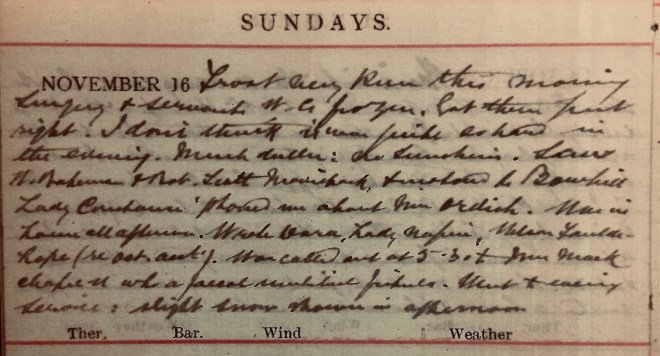 SUNDAYS.
NOVEMBER 16 Frost very keen this morning
Surgery & servants W.C. frozen. Got them put
right. I don't think it was quite so hard in
the evening. Much duller: no sunshine. Saw
W. Bateman & Rob. Scott & motored to Bowhill
Lady Constance 'phoned me about Mrs . Was in
house all afternoon. Wrote Dora, Lady Napier,
(re acct. ). Was called out at 5-30 to
who a faecal fistula. Went to evening
service: slight snow shower in afternoon
Ther. Bar. Wind Weather